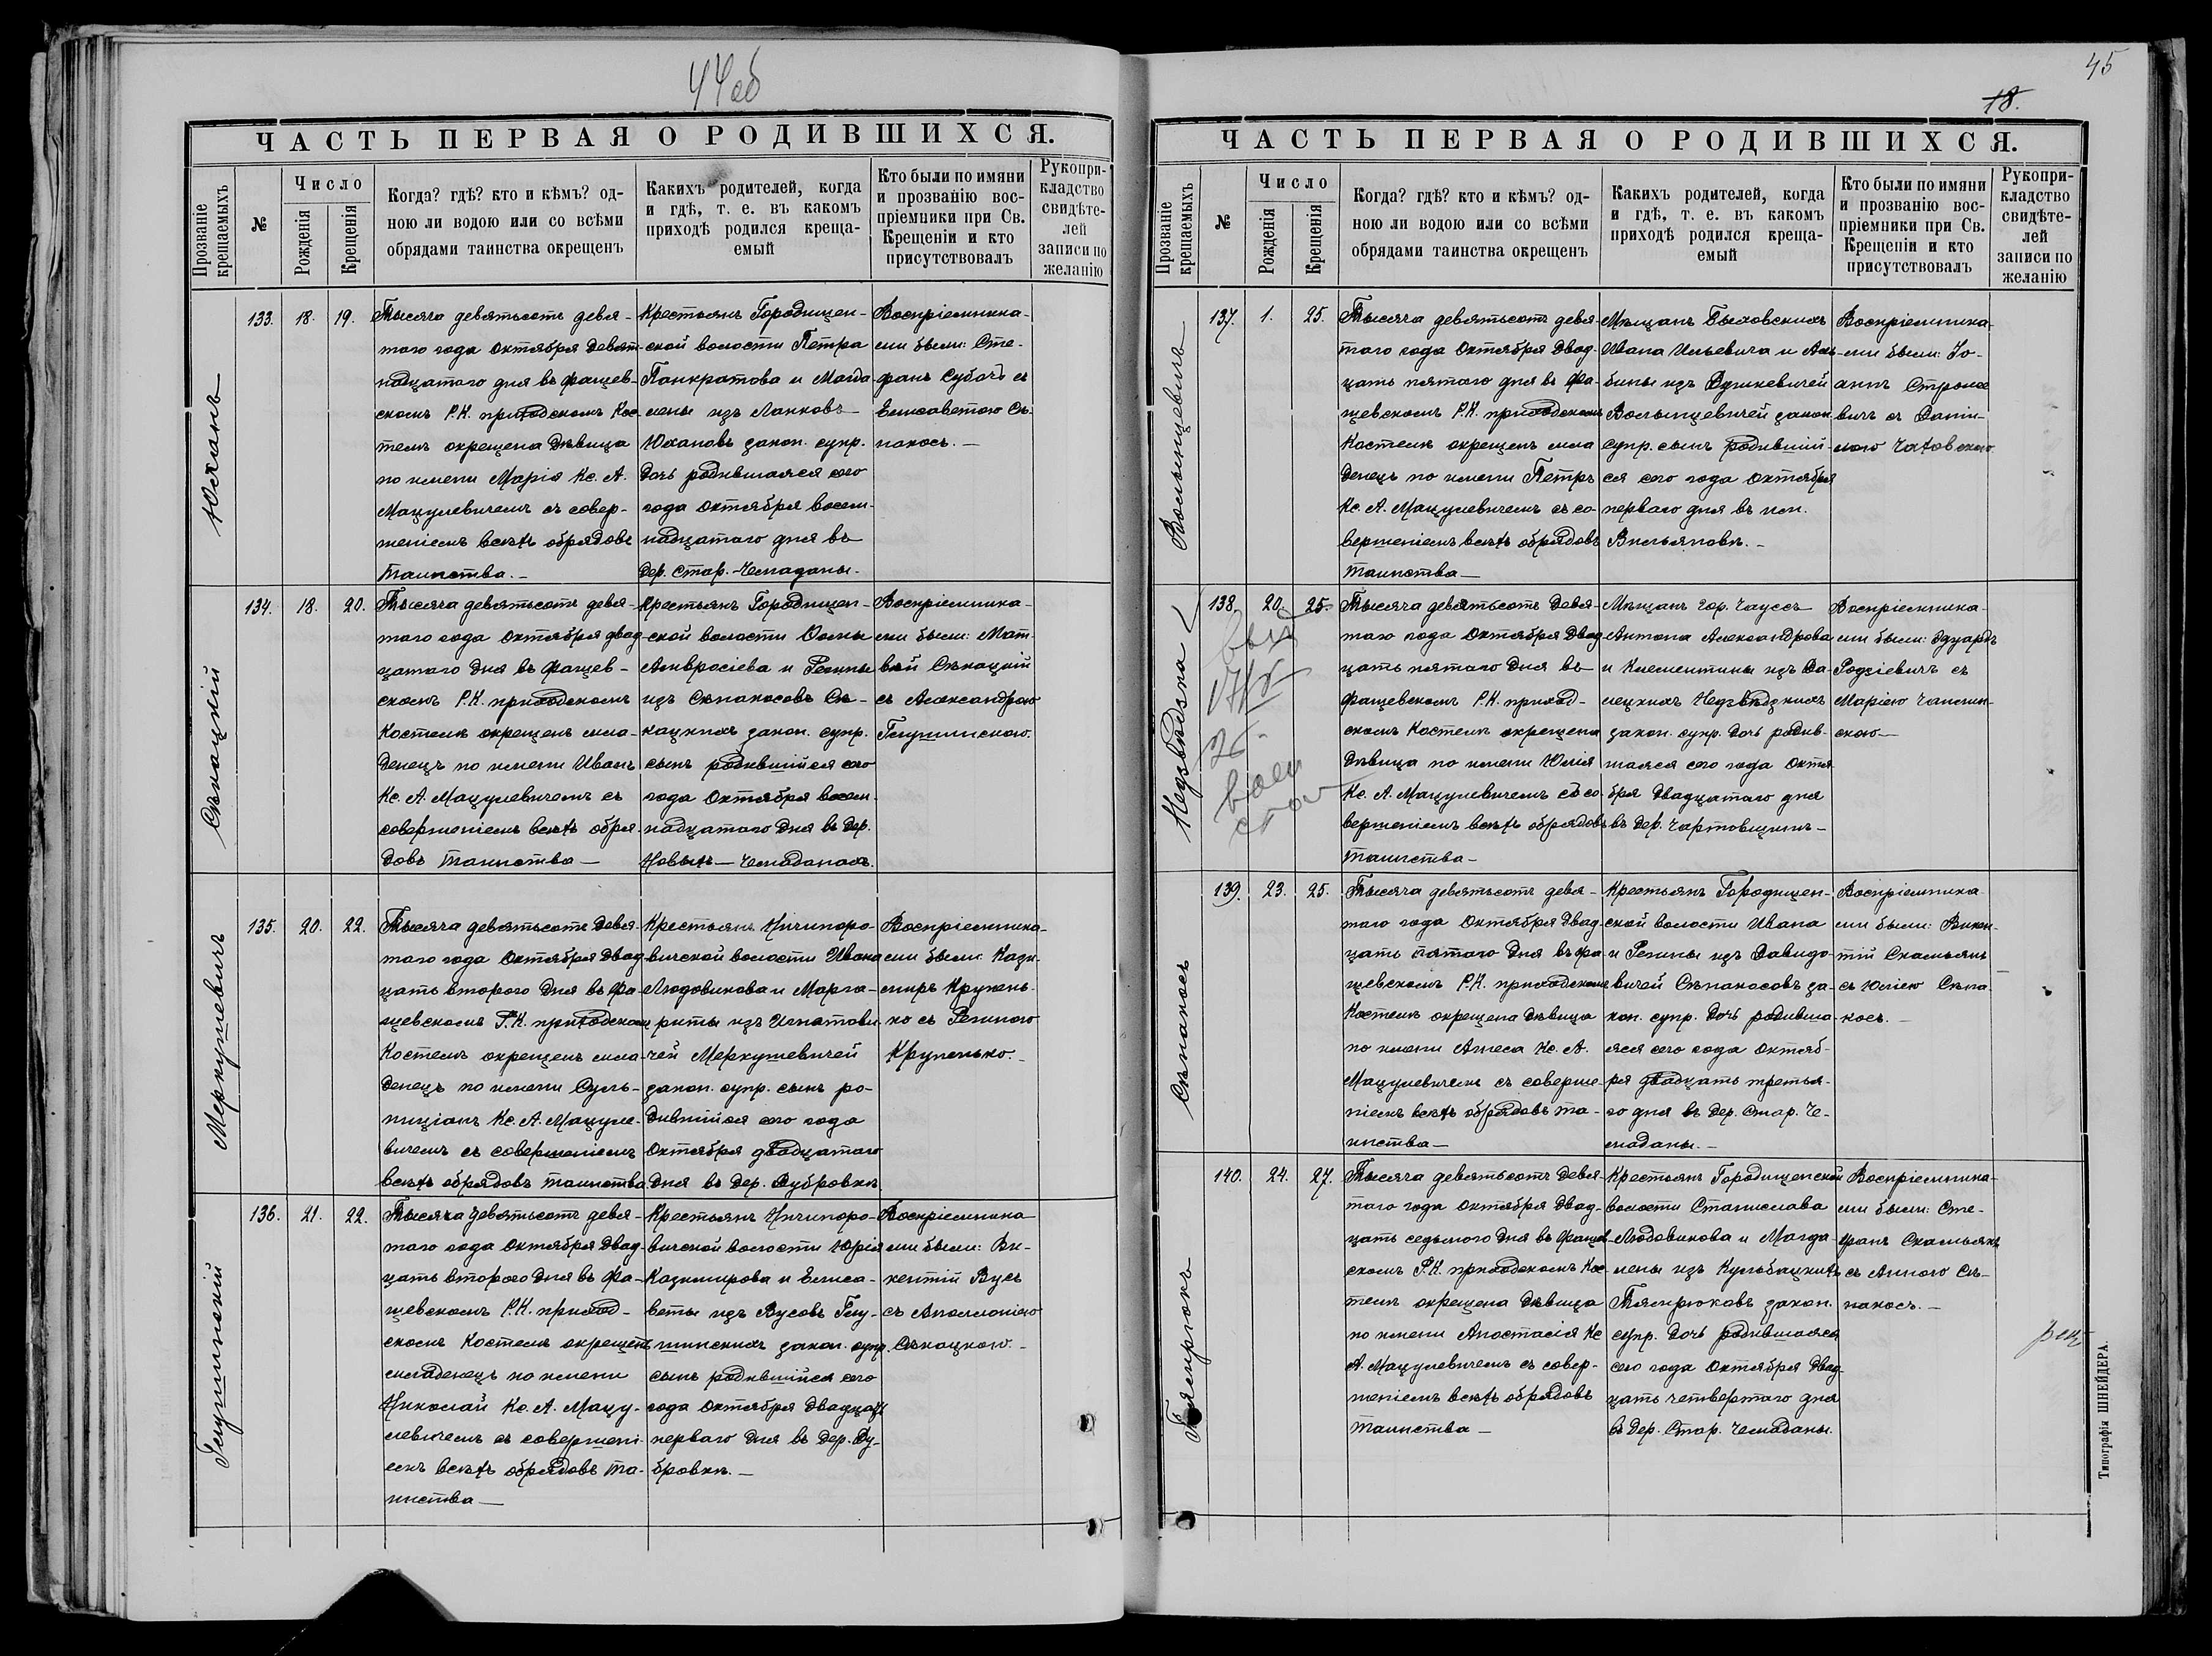 44об
ЧАСТЬ ПЕРВАЯ О РОДИВШИХСЯ.
Прозваніе крещаемыхъ
№
Число
Рожденія
Крещенія
Когда? гдѣ? кто и кѣмъ? од-
ною ли водою или со всѣми
обрядами таинства окрещенъ
Какихъ родителей, когда
и гдѣ, т. е. въ какомъ
приходѣ родился креща-
емый
Кто были по имяни
и прозванію вос-
пріемники при Св.
Крещеніи и кто
присутствовалъ
Рукопри-
кладство
свидѣте-
лей
записи по
желанію
Юханъ
133.
18.
19.
Тысяча девятьсотъ девя-
таго года Октября девят-
надцатаго дня въ Фащев-
скомъ Р.К. приходскомъ Кос-
телѣ окрещена дѣвица
по имени Марія Кс. А.
Мацулевичемъ съ совер-
шеніемъ всѣхъ обрядовъ
Таинства.-
Крестьянъ Городищен-
ской волости Петра
Панкратова и Магда-
лены изъ Лапковъ
Юхановъ закон. супр.
дочь родившаяся сего
года Октября восем-
надцатаго дня въ
дер. Стар.-Чемаданы.
Воспріемника-
ми были: Сте-
фанъ Субочъ съ
Елисаветою Сѣ-
накосъ.-
Сѣкацкій
134.
18.
20.
Тысяча девятьсотъ девя-
таго года Октября двад-
цатаго дня въ Фащев-
скомъ Р.К. приходскомъ
Костелѣ окрещенъ мла-
денецъ по имени Иванъ
Кс. А. Мацулевичемъ съ
совершеніемъ всѣхъ обря-
довъ Таинства-
Крестьянъ Городищен-
ской волости Осипа
Амвросіева и Регины
изъ Сѣнакосовъ Сѣ-
кацкихъ закон. супр.
сынъ родившійся сего
года Октября восем-
надцатаго дня въ дер.
Новыхъ-Чемаданахъ.
Воспріемника-
ми были: Мат-
вѣй Сѣкацкій
съ Александрою
Глушинскою.
Меркушевичъ
135.
20.
22.
Тысяча девятьсотъ девя-
таго года Октября двад-
цать втораго дня въ Фа-
щевскомъ Р.К. приходскомъ
Костелѣ окрещенъ мла-
денецъ по имени Суль-
пиціанъ Кс. А. Мацуле-
вичемъ съ совершеніемъ
всѣхъ обрядовъ таинства
Крестьянъ Ничипоро-
вичской волости Ивана
Людовикова и Марга-
риты изъ Игнатови-
чей Меркушевичей
закон. супр. сынъ ро-
дившійся сего года
Октября двадцатаго
дня въ дер. Дубровкѣ
Воспріемника-
ми были: Кази-
миръ Крупень-
ко съ Региною
Крупенько.-
Глушинскій
136.
21.
22.
Тысяча девятьсотъ девя-
таго года Октября двад-
цать втораго дня въ Фа-
щевскомъ Р.К. приход-
скомъ Костелѣ окрещенъ
младенецъ по имени
Николай Кс. А. Мацу-
левичемъ съ совершені-
емъ всѣхъ обрядовъ та-
инства-
Крестьянъ Ничипоро-
вичской волости Юрія
Казимирова и Елиса-
веты изъ Вусовъ Глу-
шинскихъ закон. супр.
сынъ родившійся сего
года Октября двадцать
перваго дня въ дер. Ду-
бровкѣ.-
Воспріемника
ми были: Ви-
кентій Вусъ
съ Аполлоніею
Сѣкацкою.-
45
18.
ЧАСТЬ ПЕРВАЯ О РОДИВШИХСЯ.
Прозваніе крещаемыхъ
№
Число
Рожденія
Крещенія
Когда? гдѣ? кто и кѣмъ? од-
ною ли водою или со всѣми
обрядами таинства окрещенъ
Какихъ родителей, когда
и гдѣ, т. е. въ какомъ
приходѣ родился креща-
емый
Кто были по имяни
и прозванію вос-
пріемники при Св.
Крещеніи и кто
присутствовалъ
Рукопри-
кладство
свидѣте-
лей
записи по
желанію
Волынцевичъ
137.
1.
25.
Тысяча девятьсотъ девя-
таго года Октября двад-
цать пятаго дня въ Фа-
щевскомъ Р.К. приходскомъ
Костелѣ окрещенъ мла
денецъ по имени Петръ
Кс. А. Мацулевичемъ съ со-
вершеніемъ всѣхъ обрядовъ
таинства-
Мѣщанъ Быховскихъ
Ивана Ильевича и Аль-
бины изъ Душкевичей
Волынцевичей закон
супр. сынъ родившій-
ся сего года Октября
перваго дня въ им.
Вильяновѣ.-
Воспріемника-
ми были: Іо-
аннъ
вичъ съ
Недзвѣдзка
138.
20.
25.
Тысяча девятьсотъ девя-
таго года Октября двад-
цать пятаго дня въ
Фащевскомъ Р.К. приход-
скомъ Костелѣ окрещена
дѣвица по имени Юлія
Кс. А. Мацулевичемъ съ со-
вершеніемъ всѣхъ обрядовъ
таинства-
Мѣщанъ гор. Чаусъ
Антона Александрова
и Клементины изъ За-
лецкихъ Недзвѣдзкихъ
закон. супр. дочь родив-
шаяся сего года Октя
бря двадцатаго дня
въ дер. Чартовщинѣ-
Воспріемника-
ми были: Эдуардъ
Родзіевичъ съ
Маріею Чаплин-
скою-
Сѣнакосъ
139.
23.
25.
Тысяча девятьсотъ девя-
таго года Октября двад-
цать пятаго дня въ Фа-
щевскомъ Р.К. приходскомъ
Костелѣ окрещена дѣвица
по имени Агнеса Кс. А.
Мацулевичемъ съ соверше-
ніемъ всѣхъ обрядовъ та-
инства-
Крестьянъ Городищен-
ской волости Ивана
и Регины изъ Давидо-
вичей Сѣнакосовъ за-
кон. супр. дочь родивша-
яся сего года Октяб-
ря двадцать третья-
го дня въ дер. Стар. Че-
маданы.-
Воспріемника
ми были: Викен-
тій Скамьянъ
съ Юліею Сѣна-
косъ.-
Тямрюкъ
140.
24.
27.
Тысяча девятьсотъ девя-
таго года Октября двад-
цать седьмого дня въ Фащев-
скомъ Р.К. приходскомъ Кос-
телѣ окрещена дѣвица
по имени Анастасія Кс
А. Мацулевичемъ съ совер-
шеніемъ всѣхъ обрядовъ
таинства-
Крестьянъ Городищенской
волости Станислава
Людовикова и Магда-
лены изъ Кульбацкихъ
Тямрюковъ закон.
супр. дочь родившаяся
сего года Октября двад-
цать четвертаго дня
въ дер. Стар. Чемаданы.
Воспріемника-
ми были: Сте-
фанъ Скамьянъ
съ Анною Сѣ-
накосъ.-
Типографія ШНЕЙДЕРА.